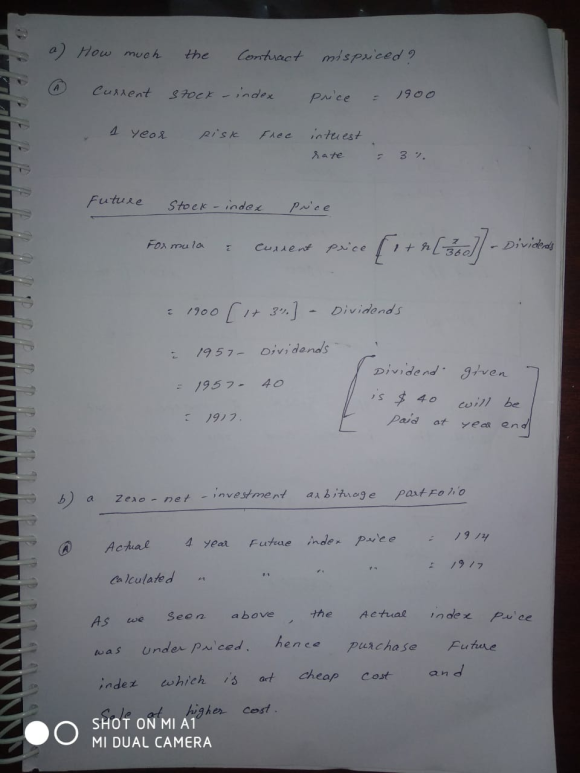 a) How much the Contract mispriced?
(A) Current Stock-index Price = 1900
1 year Risk Free interest
rate = 3%.
Future Stock-index Price
Formula = Current price [1 + r[7/360]] - Dividends
= 1900 [1+ 3%] - Dividends
= 1957- Dividends
= 1957- 40
= 1917.
[Dividend given
is $ 40 will be
paid at year end]
b) a Zero-net-investment arbitrage portfolio
(A) Actual 1 year Future index price = 1914
Calculated " " " " = 1917
As we Seen above, the Actual index price
was under priced. hence purchase Future
index which is at cheap cost and
Sale at higher cost.
SHOT ON MI A1
MI DUAL CAMERA